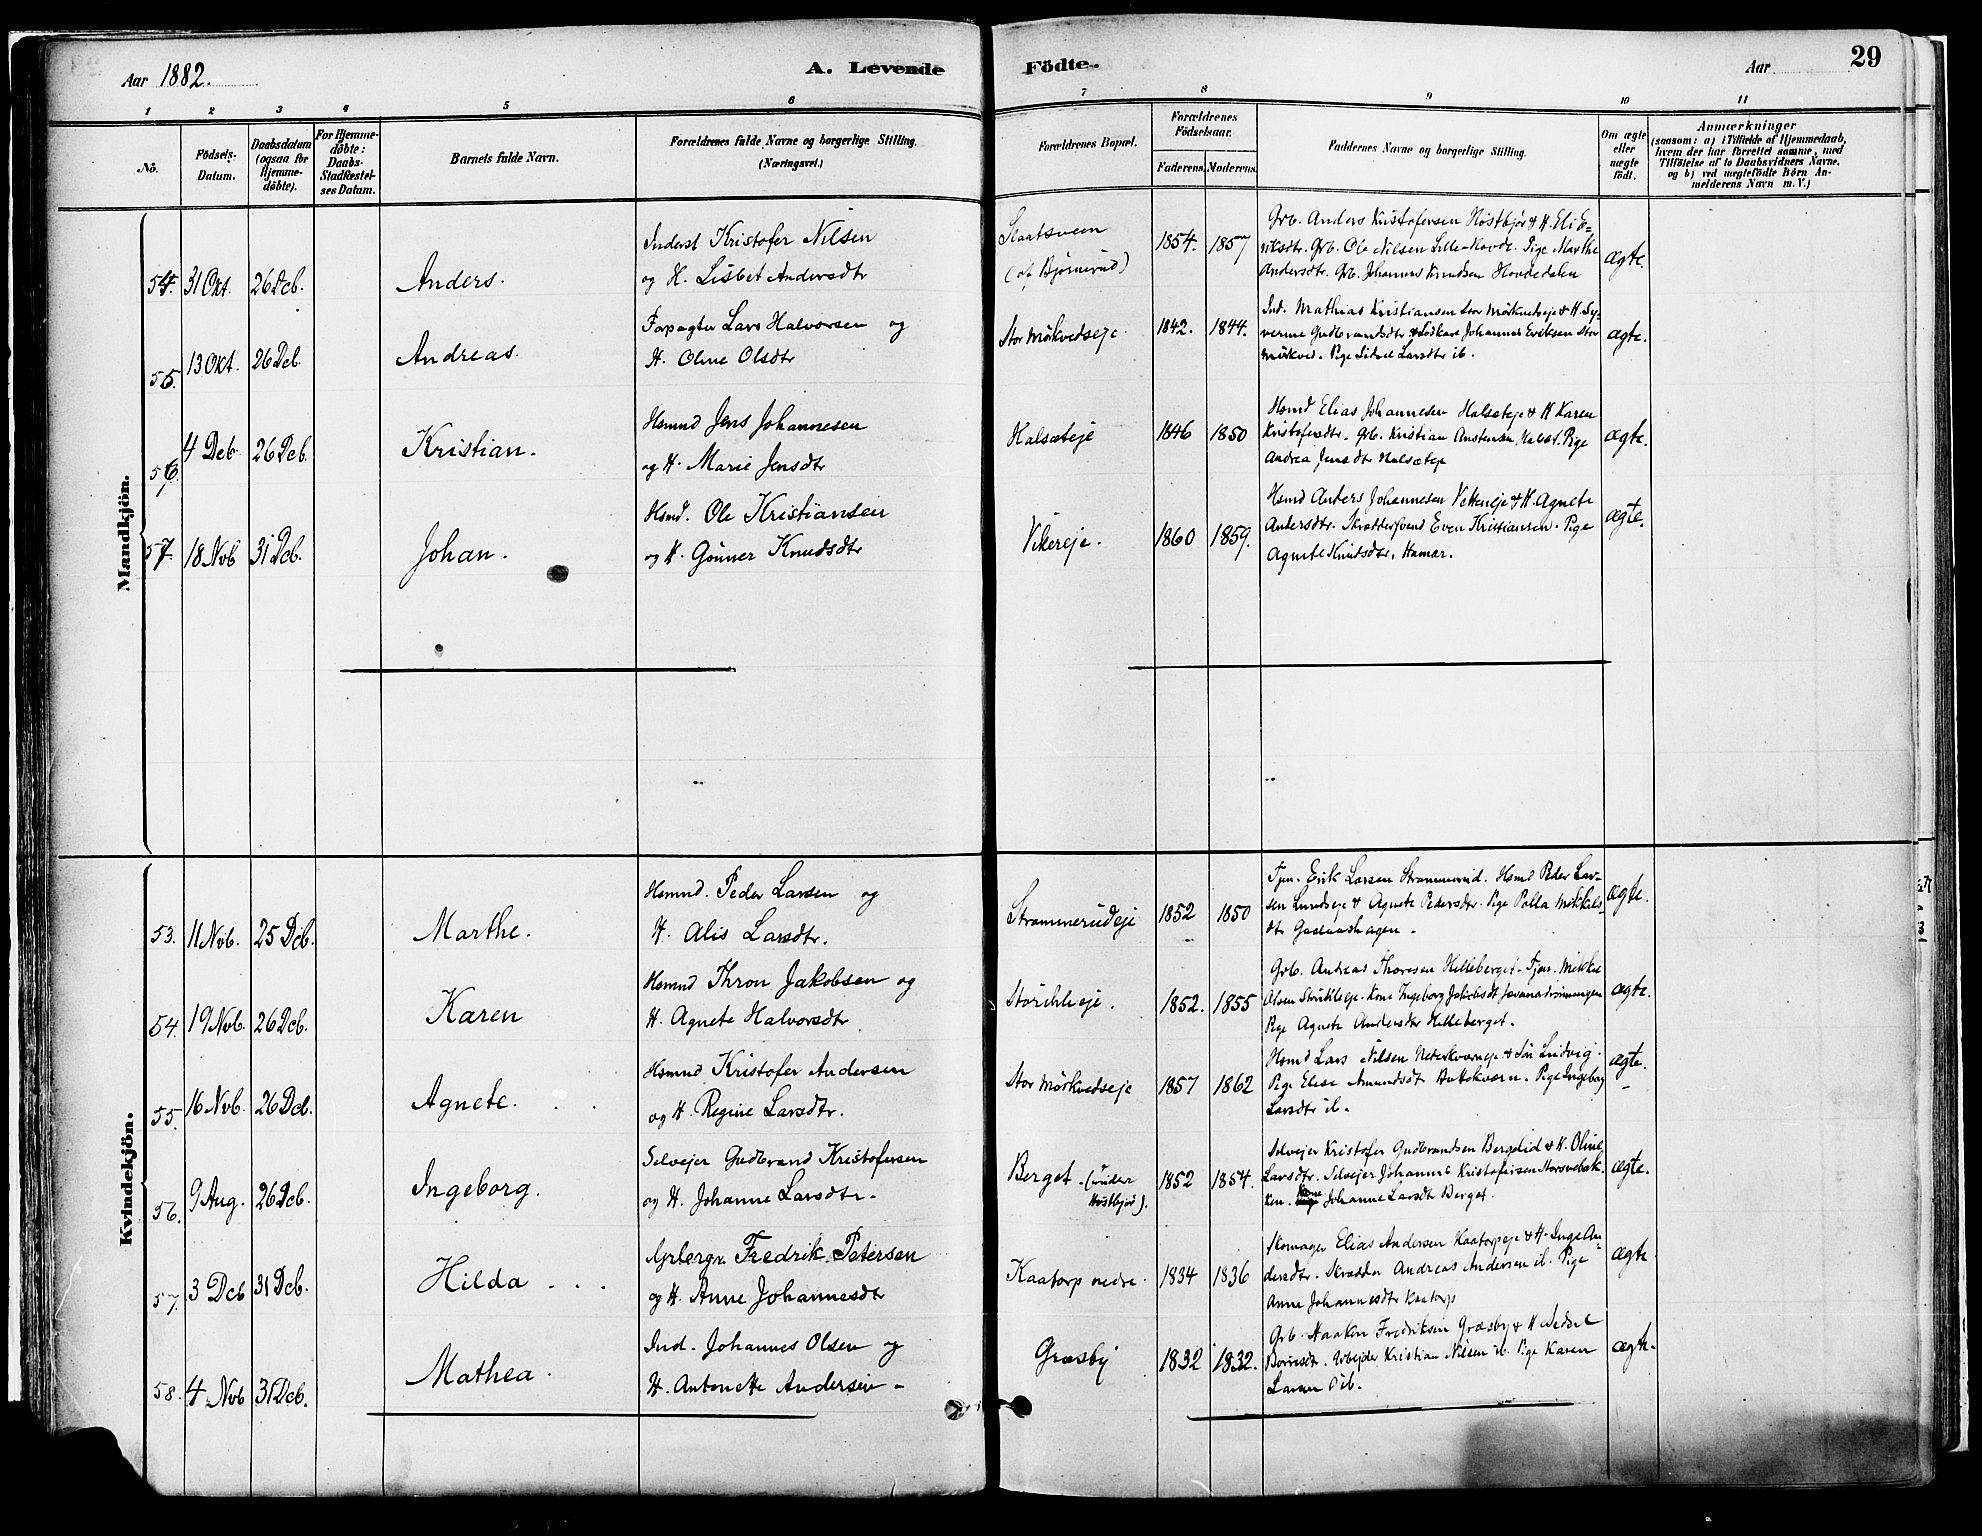 Aar 1882.
A. Levende Födte.
Aar
29
1 2 3 4 5 6 7 8 9 10 11
No.
Födsels-Datum.
Daabsdatum (ogsaa for Hjemme-döbte).
For Hjemme-döbte: Daabs-Stadfæstel-ses Datum.
Barnets fulde Navn.
Forældrenes fulde Navne og borgerlige Stilling. (Næringsvei.)
Forældrenes Bopæl.
Forældrenes Födselsaar.
Faderens. Moderens.
Faddernes Navne og borgerlige Stilling.
Om ægte eller uægte födt.
Anmærkninger
(saasom: a) i Tilfælde af Hjemmedaab,
hvem der har forrettet samme, med
Tilföielse af to Daabsvidners Navne.
og b) ved uægtefödte Börn An-
melderens Navn m. V.)
Mandkjön.
54. 31 Okt. 26 Dcb. Anders.
Inderst Kristofer Nilsen
og H. Lisbet Andersdtr
Slaatsveen
(af Bjørnerud)
1854. 1857
Grb. Anders Kristofersen Høstbjør & H. Eli E-
riksdtr. Grb. Ole Nilsen Lille-Hovde. Pige Marthe
Andersdtr. Grb. Johannes Knudsen Hovdedalen
ægte.
55. 13 Okt. 26 Dcb. Andreas.
Forpagter Lars Halvorsen og
H. Oline Olsdtr
Stor Mörkvedseje.
1842. 1844.
Ind. Mathias Kristiansen Stor Mörkvedseje & H. Sy-
verine Gudbrandsdtr & Ludkare Johannes Eriksen Stor
mörkved. Pige Sidsel Larsdtr ib.
ægte.
56. 4 Dcb. 26 Dcb. Kristian.
Hsmnd Jens Johannesen
og H. Marie Jensdtr
Halsæteje
1846 1850
Hsmd Elias Johannesen Halsæteje & H. Karen
Kristofersdtr. Grb. Kristian Anstensen Halset. Pige
Andrea Jensdtr Halsæteje
ægte.
57. 18 Nvb 31 Dcb. Johan.
Hsmd. Ole Kristiansen
og H. Gönner Knudsdtr
Vikereje.
1860 1859.
Hsmd Anders Johannesen Vetteneje & H. Agnete
Andersdtr. Skræddersvend Even Kristiansen. Pige
Agnete Knudsdtr, Hamar.
ægte.
Kvindekjön.
53. 11 Nvb. 25 Dcb. Marthe.
Hsmnd. Peder Larsen og
H. Alis Larsdtr.
Strammerudeje
1852 1850
Tjen. Erik Larsen Strammerud. Hsmd Peder Lar-
sen Lundseje & Agnete Pedersdtr. Pige Polla Mikkels-
dtr Gaalaashagen.
ægte.
54. 19 Nvb. 26 Dcb. Karen
Hsmnd Thron Jakobsen og
H. Agnete Halvorsdtr
Storihleeje.
1852. 1855
Grb. Andreas Thoresen Helleberget. Tjen. Mikkel
Olsen Strihleeje. Kone Ingeborg Jakobsdt
Pige Agnete Andersdtr Helleberget.
ægte.
55. 16 Nvb. 26 Dcb. Agnete.
Hsmnd Kristofer Andersen
og H. Regine Larsdtr.
Stor Mörkvedseje
1857 1862
Hsmd Lars Nilsen Nederkværneje & Sön Ludvig.
Pige Elise Amundsdt Buttekværn. Pige Ingeborg
Larsdtr ib.
ægte.
56. 9 Aug. 26 Dcb. Ingeborg.
Selvejer Gudbrand Kristofersen
og H. Johanne Larsdtr.
Berget. (under
Høstbjör).
1852 1854.
Selvejer Kristofer Gudbrandsen Bergelid & H. Oline
Larsdtr. Selvejer Johannes Kristofersen Storsvebak-
ken. Kone Johanne Larsdtr Berget.
ægte.
57. 3 Dcb 31 Dcb. Hilda
Grbergr. Fredrik Petersen
og H. Anne Johannesdtr
Kaatorp nedre.
1834 1836
Skomager Elias Andersen Kaatorpeje & H. Inge An-
dersdtr. Skrædder Andreas Andersen ib. Pige
Anne Johannesdtr Kaatorp
ægte
58. 4 Nvb 31 Dcb. Mathea.
Ind. Johannes Olsen og
H. Antonette Andersen.
Græsby
1832 1832.
Grb. Haaken Fredriksen Græsby & H.
Børresdtr. Arbejder Kristian Nilsen ib. Pige Karen
Larsen ib.
ægte.